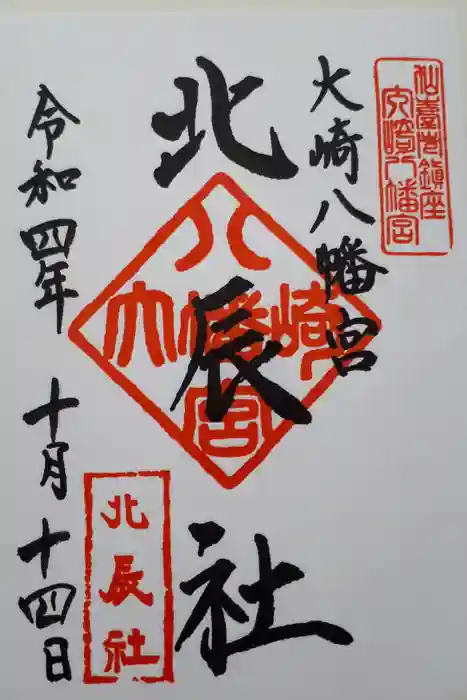 仙臺市鎮座
大崎八幡宮
大崎八幡宮
北辰社
八幡宮
大崎
北辰社
令和四年 十月 十四日